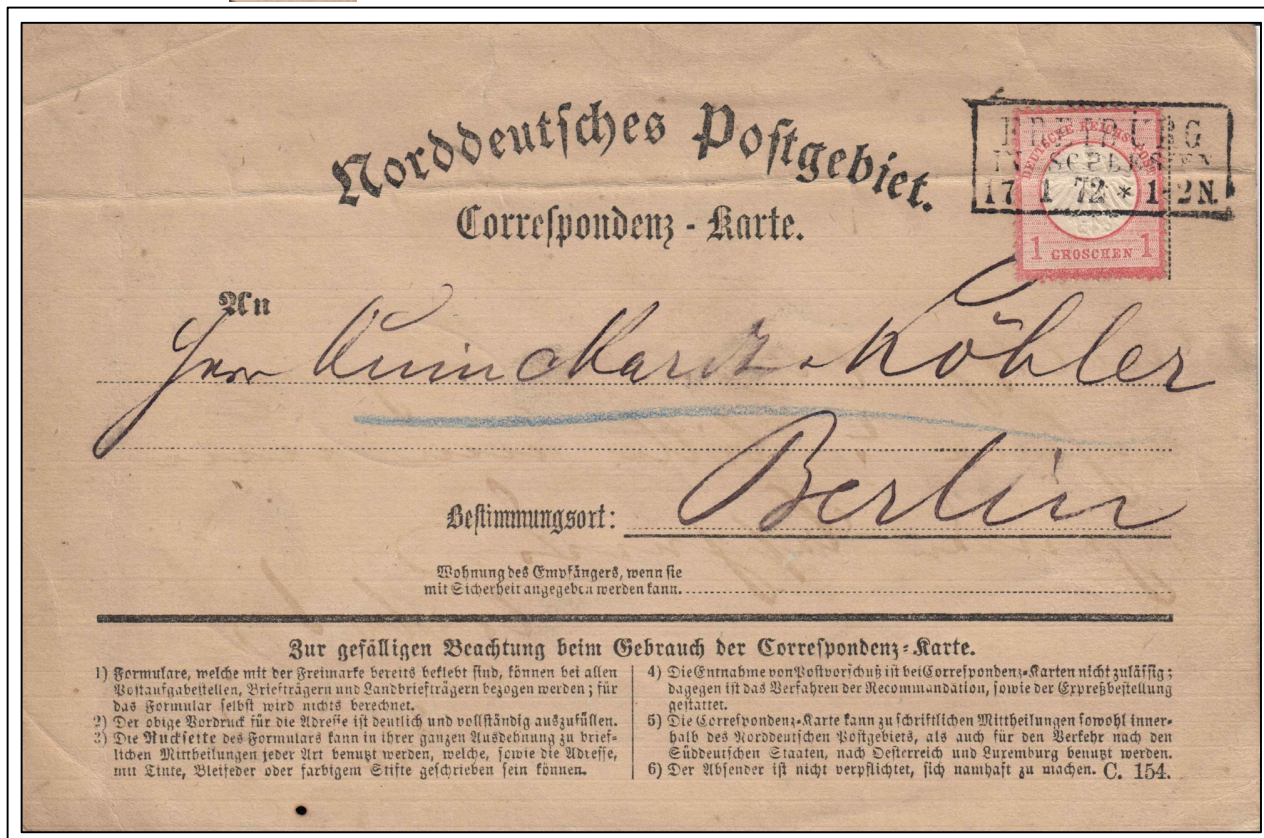 Norddeutsches Postgebiet.
Correspondenz - Karte.
FREIBURG
IN SCHLESIEN
17 1 72 * 1-2N.
DEUTSCHE REICHS-POST
1 GROSCHEN 1
An
Herr Köhler
Berlin
Bestimmungsort:
Wohnung des Empfängers, wenn sie
mit Sicherheit angegeben werden kann.
Zur gefälligen Beachtung beim Gebrauch der Correspondenz-Karte.
1) Formulare, welche mit der Freimarke bereits beklebt sind, können bei allen
Postaufgabestellen, Briefträgern und Landbriefträgern bezogen werden; für
das Formular selbst wird nichts berechnet.
2) Der obige Vordruck für die Adresse ist deutlich und vollständig auszufüllen.
3) Die Rückseite des Formulars kann in ihrer ganzen Ausdehnung zu brief-
lichen Mittheilungen jeder Art benutzt werden, welche, sowie die Adresse,
mit Tinte, Bleifeder oder farbigem Stifte geschrieben sein können.
4) Die Entnahme von Postvorschuß ist bei Correspondenz-Karten nicht zulässig;
dagegen ist das Verfahren der Recommandation, sowie der Expreßbestellung
gestattet.
5) Die Correspondenz-Karte kann zu schriftlichen Mittheilungen sowohl inner-
halb des Norddeutschen Postgebiets, als auch für den Verkehr nach den
Süddeutschen Staaten, nach Oesterreich und Luxemburg benutzt werden.
6) Der Absender ist nicht verpflichtet, sich namhaft zu machen. C. 154.